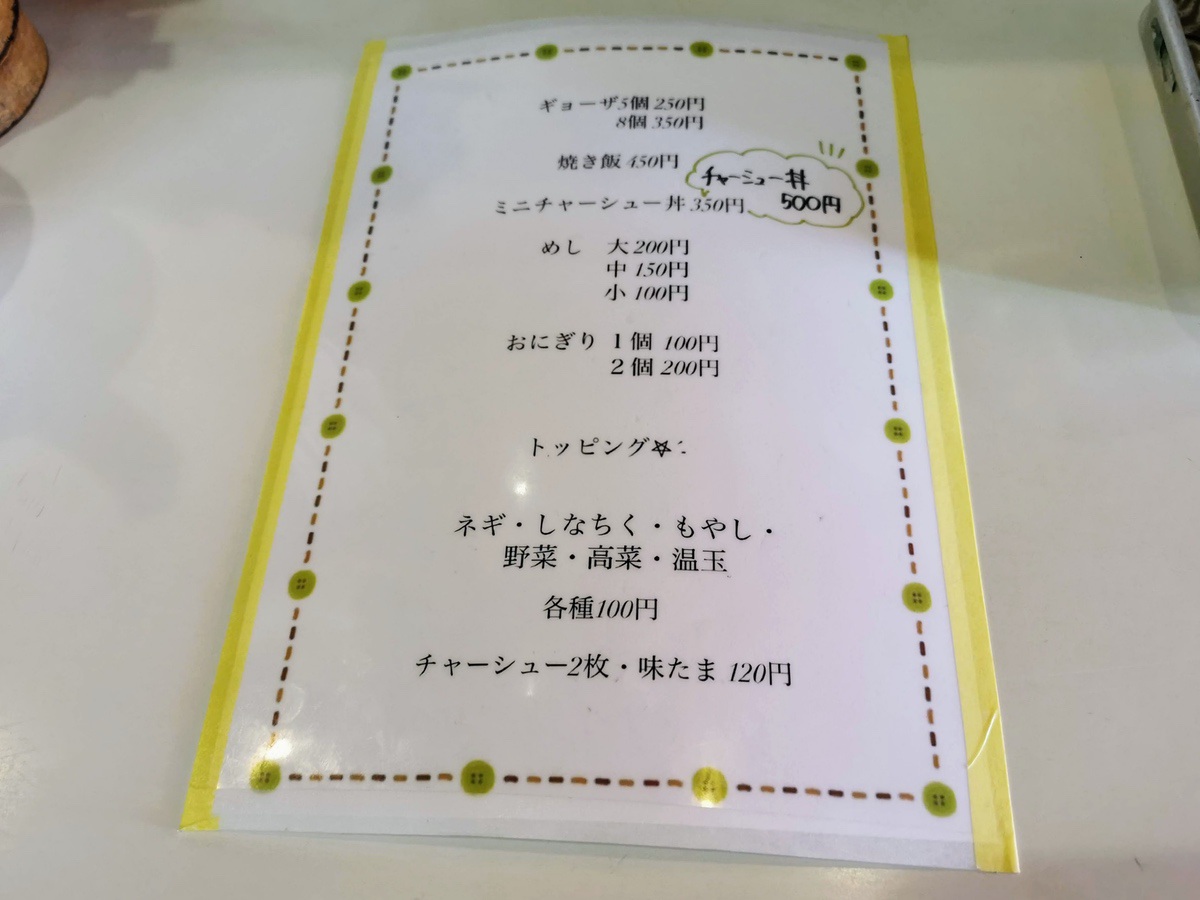 ギョーザ5個 250円
8個 350円
焼き飯 450円
チャーシュー丼
500円
ミニチャーシュー丼 350円
めし 大 200円
中 150円
小 100円
おにぎり 1個 100円
2個 200円
トッピング
ネギ・しなちく・もやし・
野菜・高菜・温玉
各種100円
チャーシュー2枚・味たま 120円